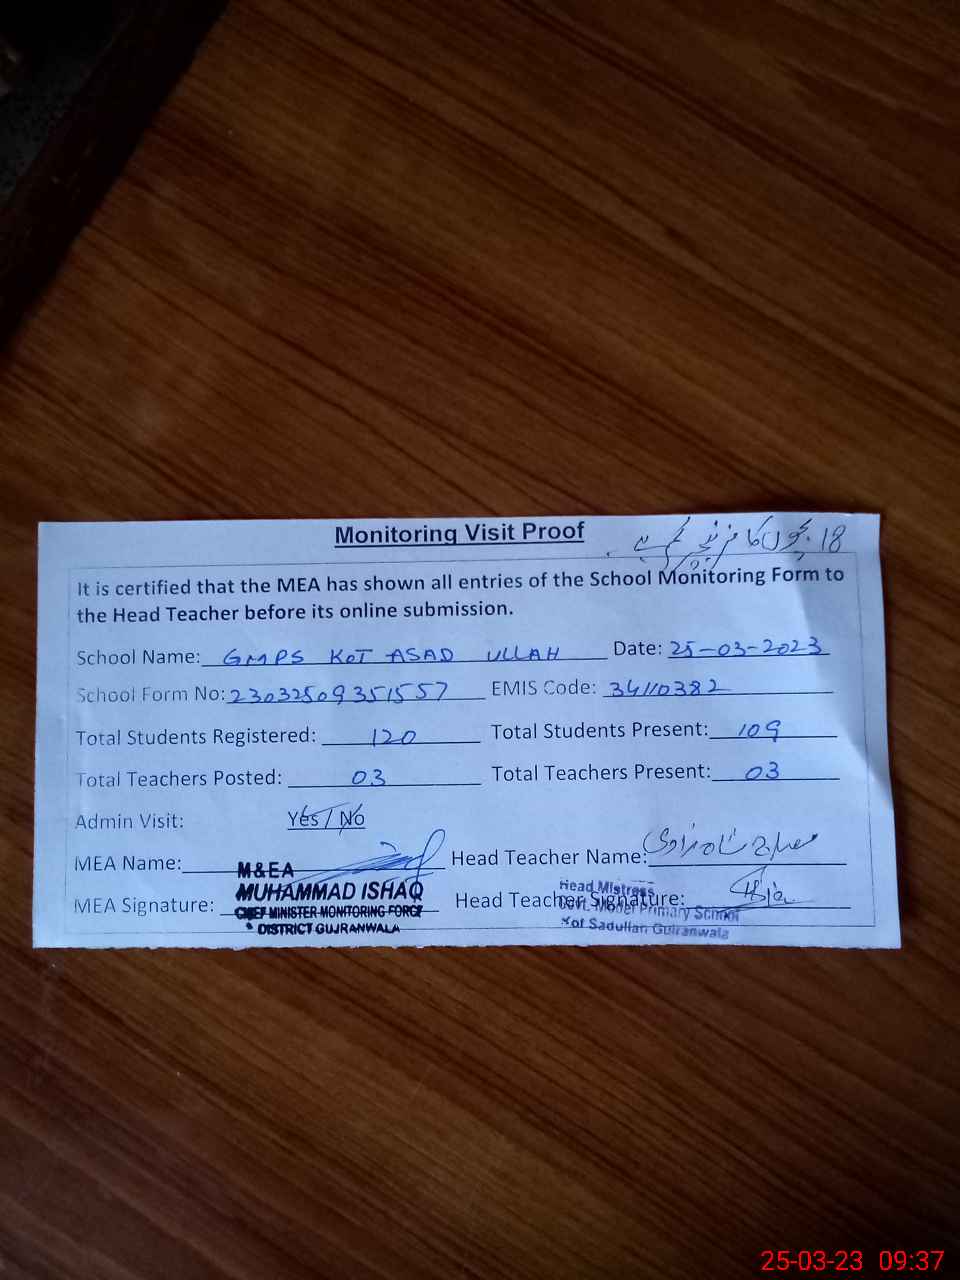 Monitoring Visit Proof
18 بچوں کا فرنیچر کم ہے۔
It is certified that the MEA has shown all entries of the School Monitoring Form to
the Head Teacher before its online submission.
School Name: GMPS KOT ASAD ULLAH Date: 25-03-2023
School Form No: 23032509351557 EMIS Code: 34110382
Total Students Registered: 120 Total Students Present: 109
Total Teachers Posted: 03 Total Teachers Present: 03
Admin Visit: Yes / No
MEA Name: Head Teacher Name:
M&EA
MUHAMMAD ISHAQ
CHIEF MINISTER MONITORING FORCE
DISTRICT GUJRANWALA
MEA Signature: Head Teacher Signature:
Head Mistress
Govt. Model Primary School
Kot Sadullah Gujranwala
25-03-23 09:37